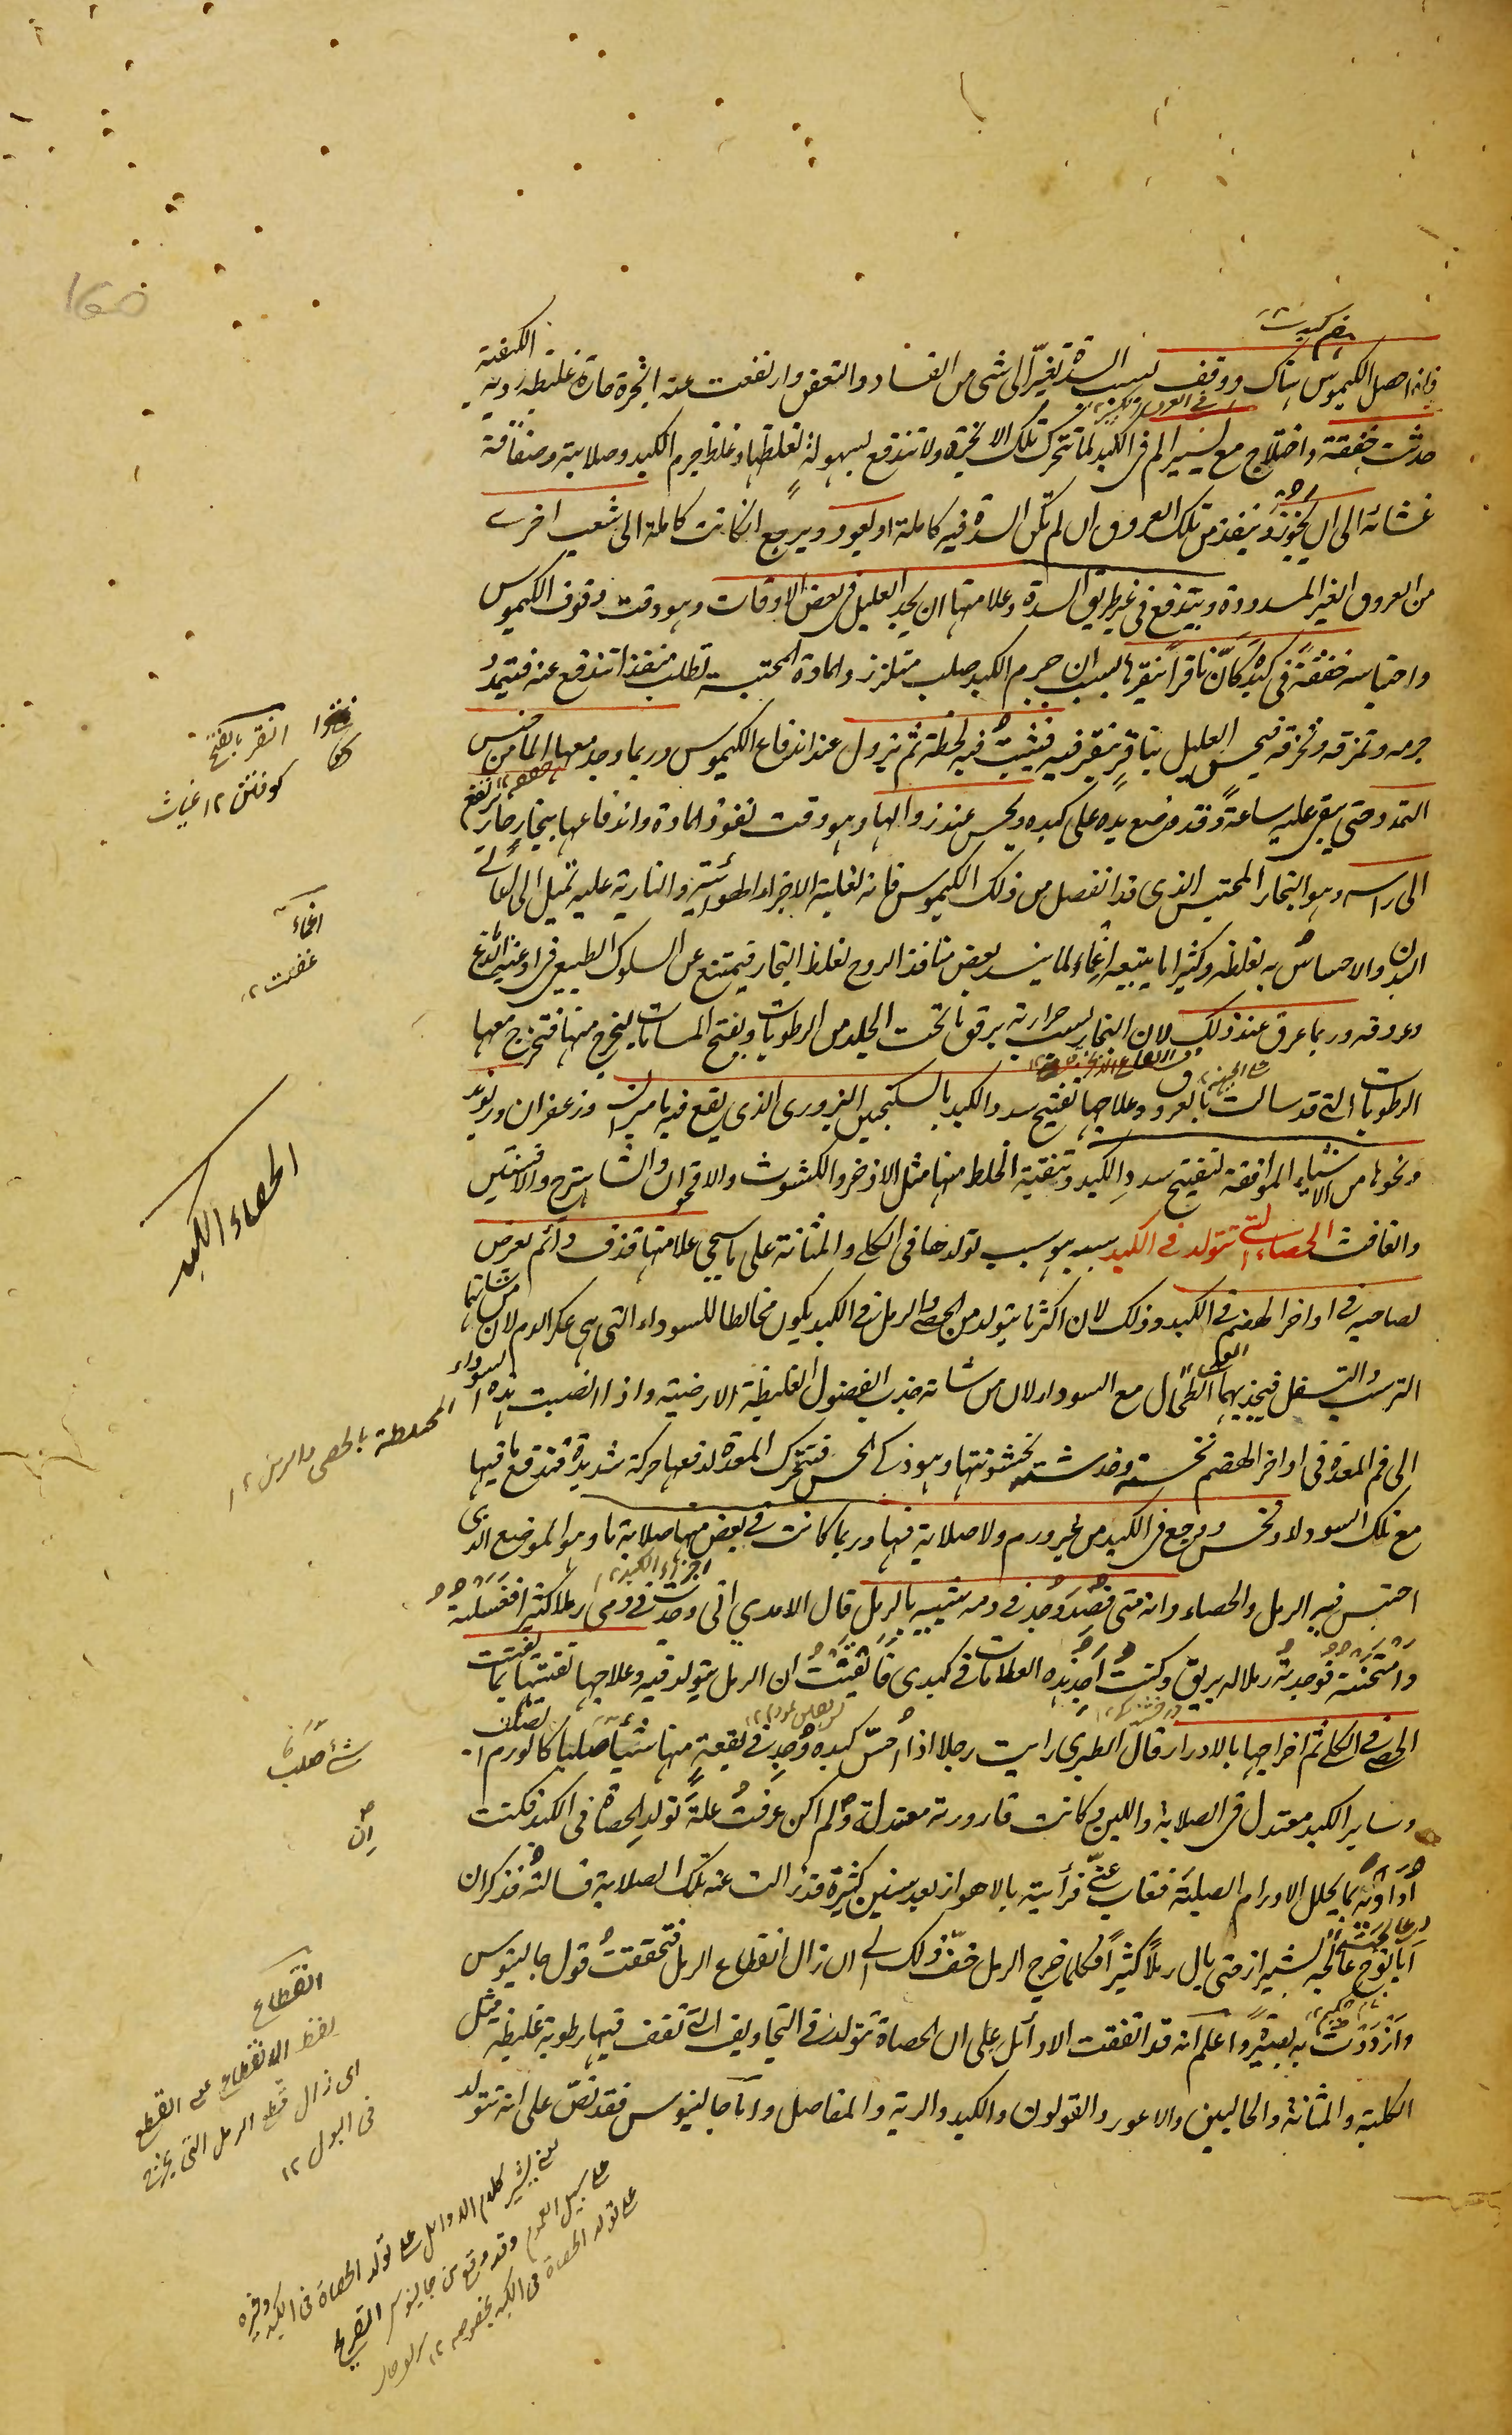 فاذا حصل الكيموس هناك ووقف بسبب السدة تغير الى شى من الفساد والتعفن وارتفعت عنه ابخرة حارة غليظة ردية الكيفية
حدثت خفقة واختلاج مع يسير الم فى الكبد لما تتحرك تلك الابخرة ولا تندفع بسهولة لغلظها وغلظ جرم الكبد وصلابته وصفاقة
غشائه الى ان يجوز وينفذ من تلك العروق ان لم تكن السدة فيه كاملة او يعود ويرجع ان كانت كاملة الى شعب اخرى
من العروق الغير المسدودة ويندفع فى غير طريق السدة وعلامتها ان يجد العليل فى بعض الاوقات وهو وقت وقوف الكيموس
واحتباسه خفقة فى كبده كأن ناقرا ينقرها بسبب ان جرم الكبد صلب متلزز والمادة المحتبسة تطلب منفذا تندفع عنه فتمدد
جرمه وتمزقه وتخرقه فيحس العليل بناقر ينقر فيه فيثبت فيه لحظة ثم يزول عند اندفاع الكيموس وربما وجد معها الما من
التمدد حتى يبقى عليه ساعة وقد وضع يده على كبده ويحس عند زوالها وهو وقت نفوذ المادة واندفاعها ببخار حار يرتفع
الى راسه وهو البخار المحتبس الذى قد انفصل من ذلك الكيموس فانه لغلبة الاجزاء الهوائية والنارية عليه تميل الى اعالى
البدن والاحساس به لغلظه وكثيرا ما يتبعه اغماء لما ينسد بعض منافذ الروح لغلظ البخار فيمتنع عن السلوك الطبيعى فى اوعية الدماغ
وعروقه وربما عرق عند ذلك لان البخار بسبب حرارته يرقق ما تحت الجلد من الرطوبات ويفتح المسامات ليخرج منها فتخرج معها
الرطوبات التى قد سالت بالعرق وعلاجها تفتيح سدد الكبد بالسكنجبين البزورى الذى يقع فيه ماميران وزعفران وريوند
ونحوها من الاشياء الموافقة لتفتيح سدد الكبد وتنقية الخلط منها مثل الاذخر والكشوث والاقحوان والشاهترج والافسنتين
والغافث الحصاء التى تتولد فى الكبد سببه هو سبب تولدها فى الكلى والمثانة على ما سيجى علامتها قذف دائم يعرض
لصاحبه فى اواخر الهضم فى الكبد وذلك لان اكثر ما يتولد من الحصى والرمل فى الكبد يكون مخالطا للسوداء التى هى عكر الدم لان من شانهما
الترسب والتسفل فيجذبهما الطحال مع السوداء لان من شانه جذب الفضول الغليظة الارضية واذا انصبت هذه السوداء
الى فم المعدة فى اواخر الهضم نخسته وخدشته بخشونتها وهو ذكى الحس فتتحرك المعدة لدفعها حركة شديدة فتندفع ما فيها
مع تلك السوداء ونخس ووجع فى الكبد من غير ورم ولا صلابة فيها وربما كانت فى بعض منها صلابة ما وهو الموضع الذى
احتبس فيه الرمل والحصاء وانه متى فصد وجد فى دمه شبيه بالرمل قال الامدى انى وجدت فى دمى رملا كثيرا فغسلته
وامتحنته فوجدته رملا له بريق وكنت اجد هذه العلامات فى كبدى فايقنت ان الرمل يتولد فيه وعلاجها تفتيتها بما تفتت
الحصى فى الكلى ثم اخراجها بالادرار قال الطبرى رايت رجلا اذا احس كبده وجد فى بقعة منها شيئا صلبا كالورم الصلب
وساير الكبد معتدل فى الصلابة واللين وكانت قارورته معتدلة ولم اكن عرفت علة تولد الحصاة فى الكبد فكنت
اداويه بما يحلل الاورام الصلبة فغاب عنى فرأيته بالاهواز بعد سنين كثيرة قد زالت عنه تلك الصلابة فسالته فذكر ان
ابا نوح عالجه بشيراز حتى بال رملا كثيرا فكلما خرج الرمل خف ذلك الى ان زال انقطاع الرمل فتحققت قول جالينوس
وازددت به بصيرة واعلم انه قد اتفقت الاوائل على ان الحصاة تتولد فى التجاويف التى تقف فيها رطوبة غليظة مثل
الكلية والمثانة والحالبين والاعور والقولون والكبد والرية والمفاصل واما جالينوس فقد نص على انه تتولد
النقر بالفتح
كوفتن ١٢ غياث
اغماء
غفلت ١٢
الحصاء الكبد
المختلطة بالحصى والرمل ١٢
شئ صلب
ان
انقطاع
لفظ الانقطاع على القطع
اى زال قطع الرمل التى يخرج
فى البول ١٢
يعنى يشير كلام الاوائل على تولد الحصاة فى الكبد وغيره
على سبيل العموم وقد وقع من جالينوس التصريح
على تولد الحصاة فى الكبد بخصوصه ١٢